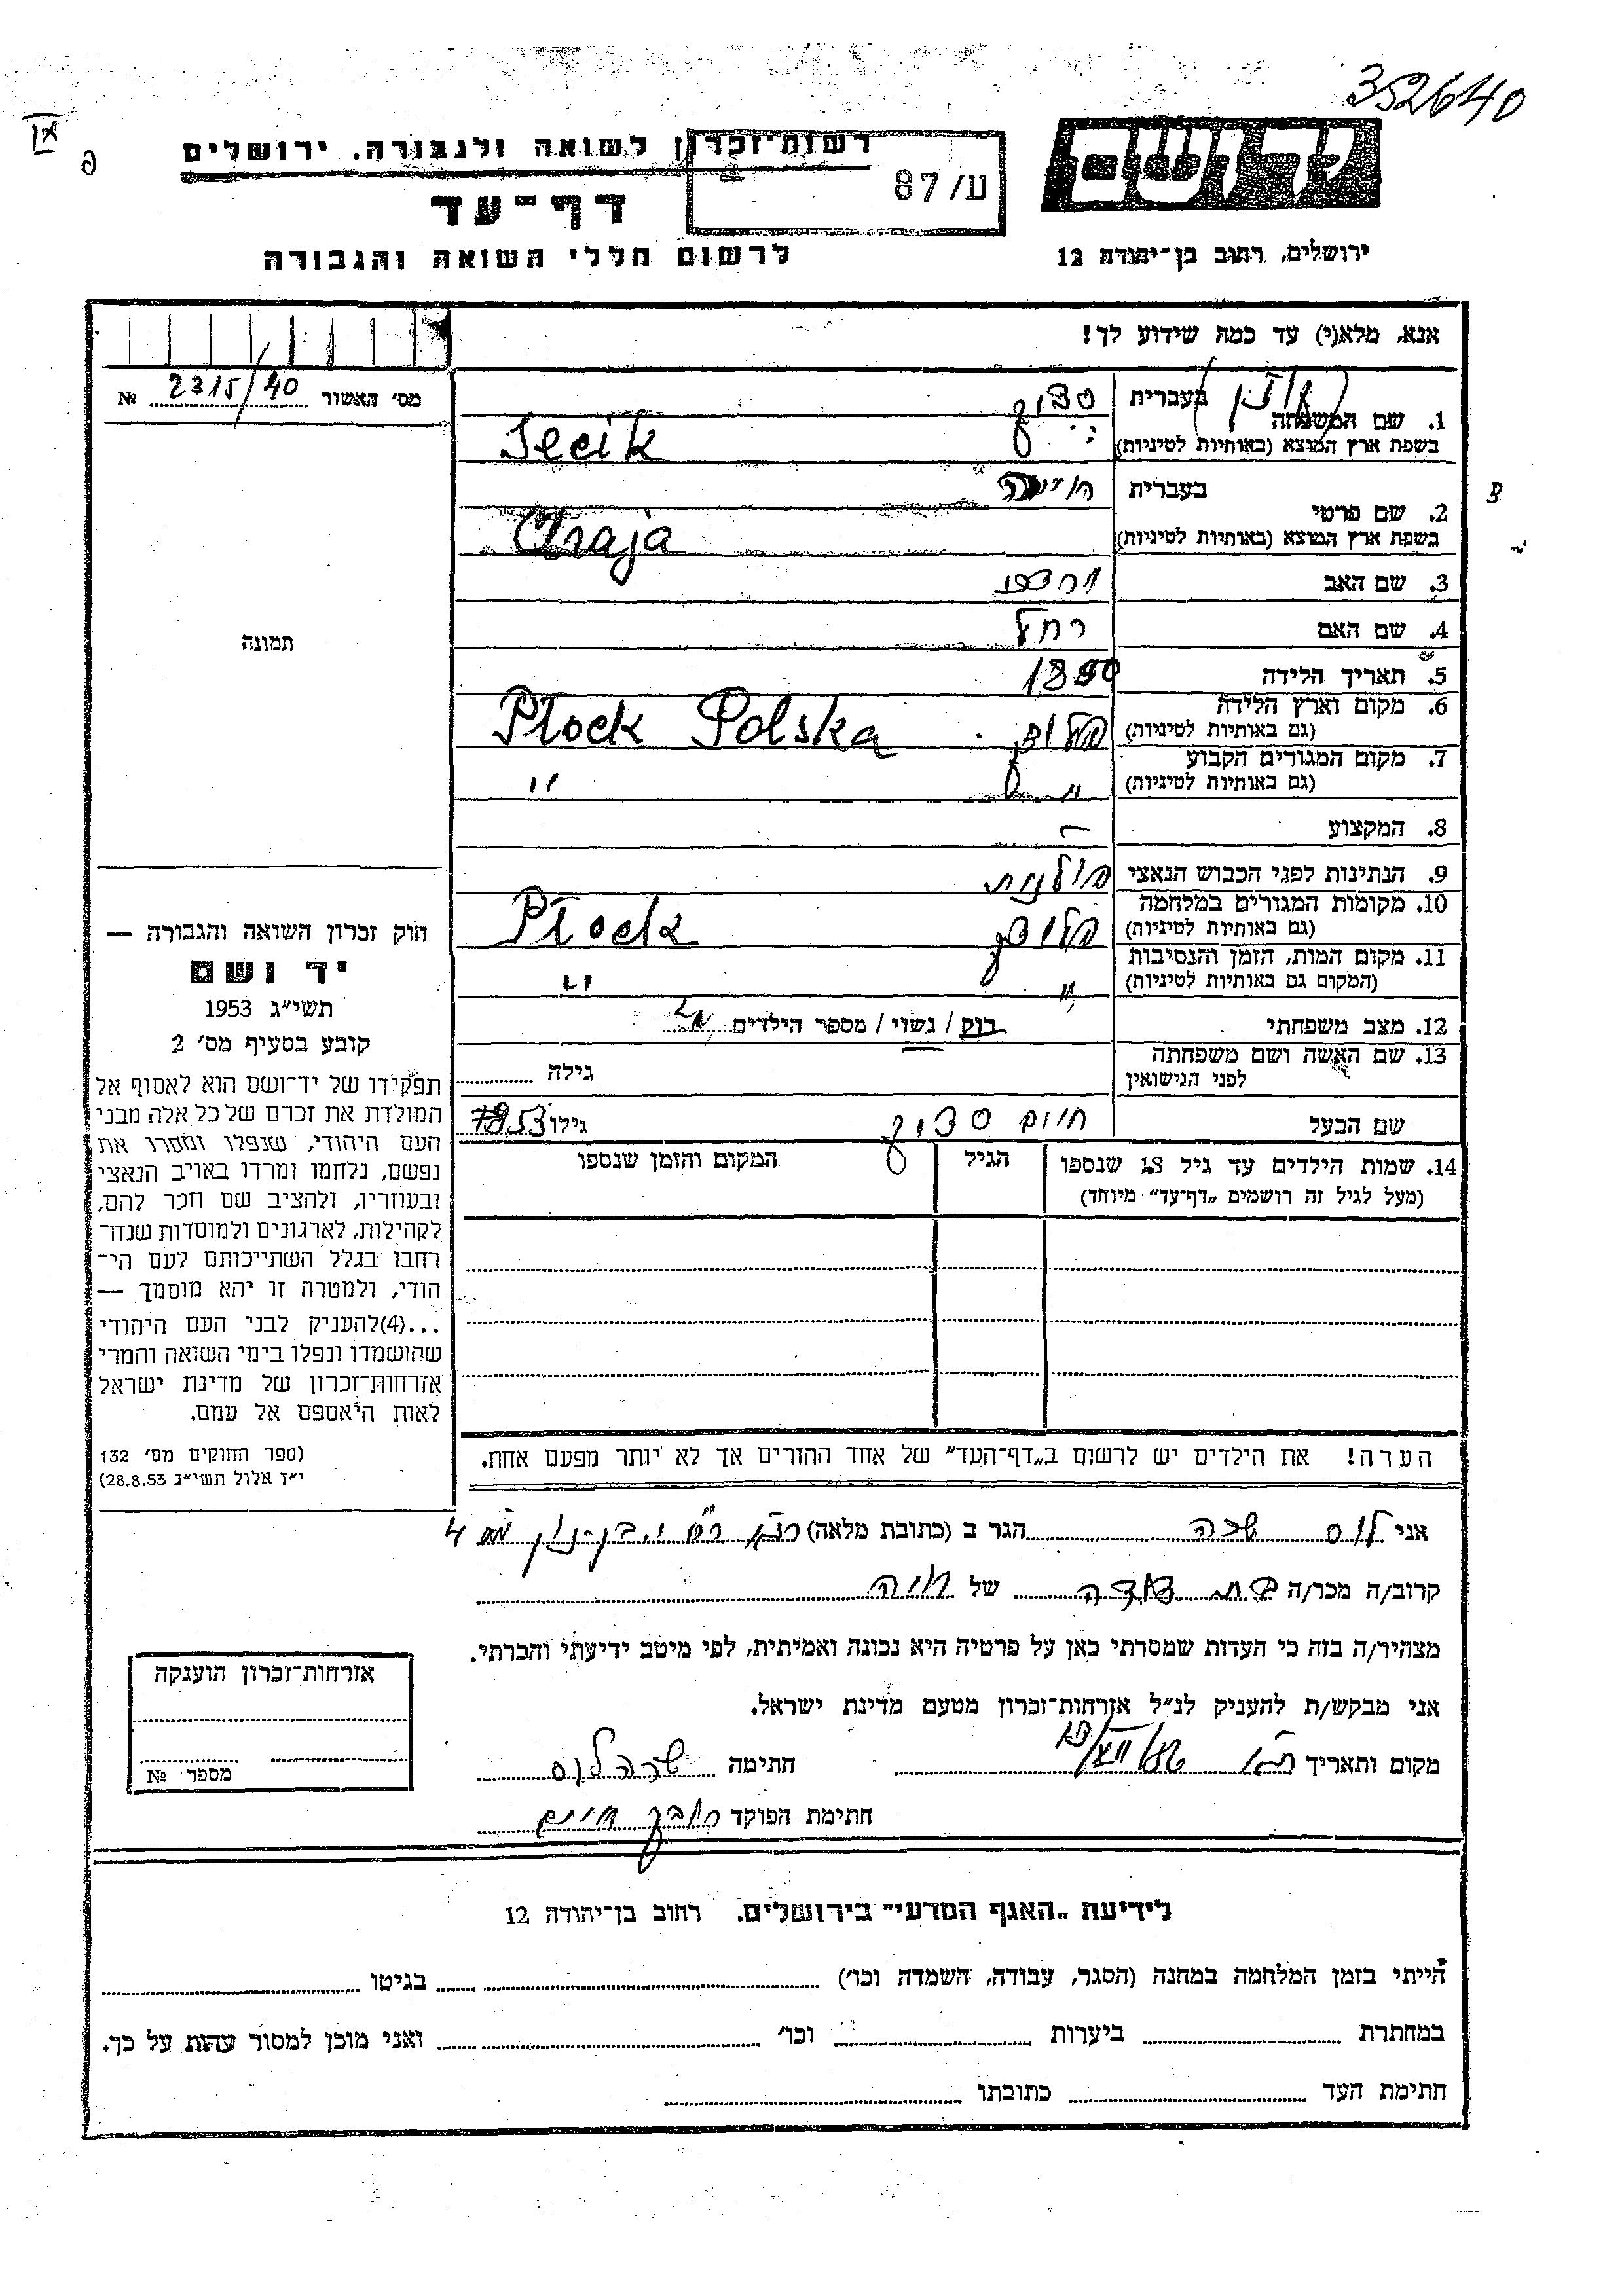 352640
רשות־זכרון לשואה ולגבורה. ירושלים
דף־עד
לרשום חללי השואה והגבורה
ע/87
ירושלים, רחוב בן־יהודה 12
אנא, מלא(י) עד כמה שידוע לך!
מס׳ האשור № 2315/40
1. שם המשפחה
בעברית
בשפת ארץ המוצא (באותיות לטיניות) Secik
2. שם פרטי
בעברית חייה
בשפת ארץ המוצא (באותיות לטיניות) Chaja
3. שם האב
4. שם האם רחל
5. תאריך הלידה
6. מקום וארץ הלידה
(גם באותיות לטיניות) פלוצק Płock Polska
7. מקום המגורים הקבוע
(גם באותיות לטיניות) " "
8. המקצוע –
9. הנתינות לפני הכבוש הנאצי פולנית
10. מקומות המגורים במלחמה
(גם באותיות לטיניות) פלוצק Płock
11. מקום המות, הזמן והנסיבות
(המקום גם באותיות לטיניות) " "
12. מצב משפחתי רוק / נשוי / מספר הילדים
13. שם האשה ושם משפחתה
לפני הנישואין
גילה
שם הבעל חיים גילו 53
14. שמות הילדים עד גיל 18 שנספו
(מעל לגיל זה רושמים „דף־עד” מיוחד)
הגיל
המקום והזמן שנספו
תמונה
חוק זכרון השואה והגבורה —
יד ושם
תשי״ג 1953
קובע בסעיף מס׳ 2
תפקידו של יד־ושם הוא לאסוף אל
המולדת את זכרם של כל אלה מבני
העם היהודי, שנפלו ומסרו את
נפשם, נלחמו ומרדו באויב הנאצי
ובעוזריו, ולהציב שם וזכר להם,
לקהילות, לארגונים ולמוסדות שנח־
רחבו בגלל השתייכותם לעם הי־
הודי, ולמטרה זו יהא מוסמך —
...(4)להעניק לבני העם היהודי
שהושמדו ונפלו בימי השואה והמרי
אזרחות־זכרון של מדינת ישראל
לאות היאספם אל עמם.
(ספר החוקים מס׳ 132
י״ז אלול תשי״ג 28.8.53)
הערה! את הילדים יש לרשום ב„דף־העד” של אחד ההורים אך לא יותר מפעם אחת.
אני לוס שרה הגר ב (כתובת מלאה)
קרוב/ה מכר/ה בת דודה של חיה
מצהיר/ה בזה כי העדות שמסרתי כאן על פרטיה היא נכונה ואמיתית, לפי מיטב ידיעתי והכרתי.
אני מבקש/ת להעניק לנ״ל אזרחות־זכרון מטעם מדינת ישראל.
מקום ותאריך
חתימה שרה לוס
חתימת הפוקד
אזרחות־זכרון הוענקה
מספר №
לידיעת „האגף המדעי” בירושלים. רחוב בן־יהודה 12
הייתי בזמן המלחמה במחנה (הסגר, עבודה, השמדה וכו׳) בגיטו
במחתרת ביערות וכו׳ ואני מוכן למסור עדות על כך.
חתימת העד כתובתו